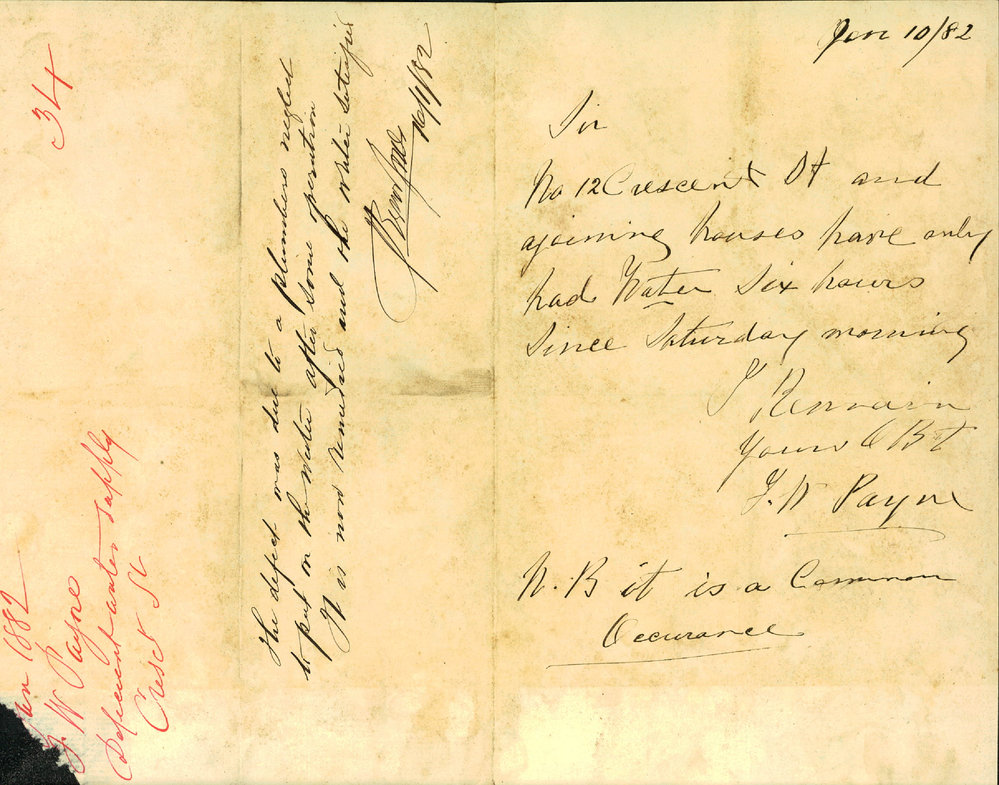 Jan 10/82
Sir
No 12 Crescent St and
ajoining houses have only
had Water six hours
Since Saturday morning
I Remain
Your OBt
F. W Payne
N.B it is a Common
Occurance
The defect was due to a plumbers neglect
to put on the water after some operation
It is now remedied and the Water satisfies
16/1/82
34
Jan 1882
F. W Payne
Deficient water supply
Cresct St